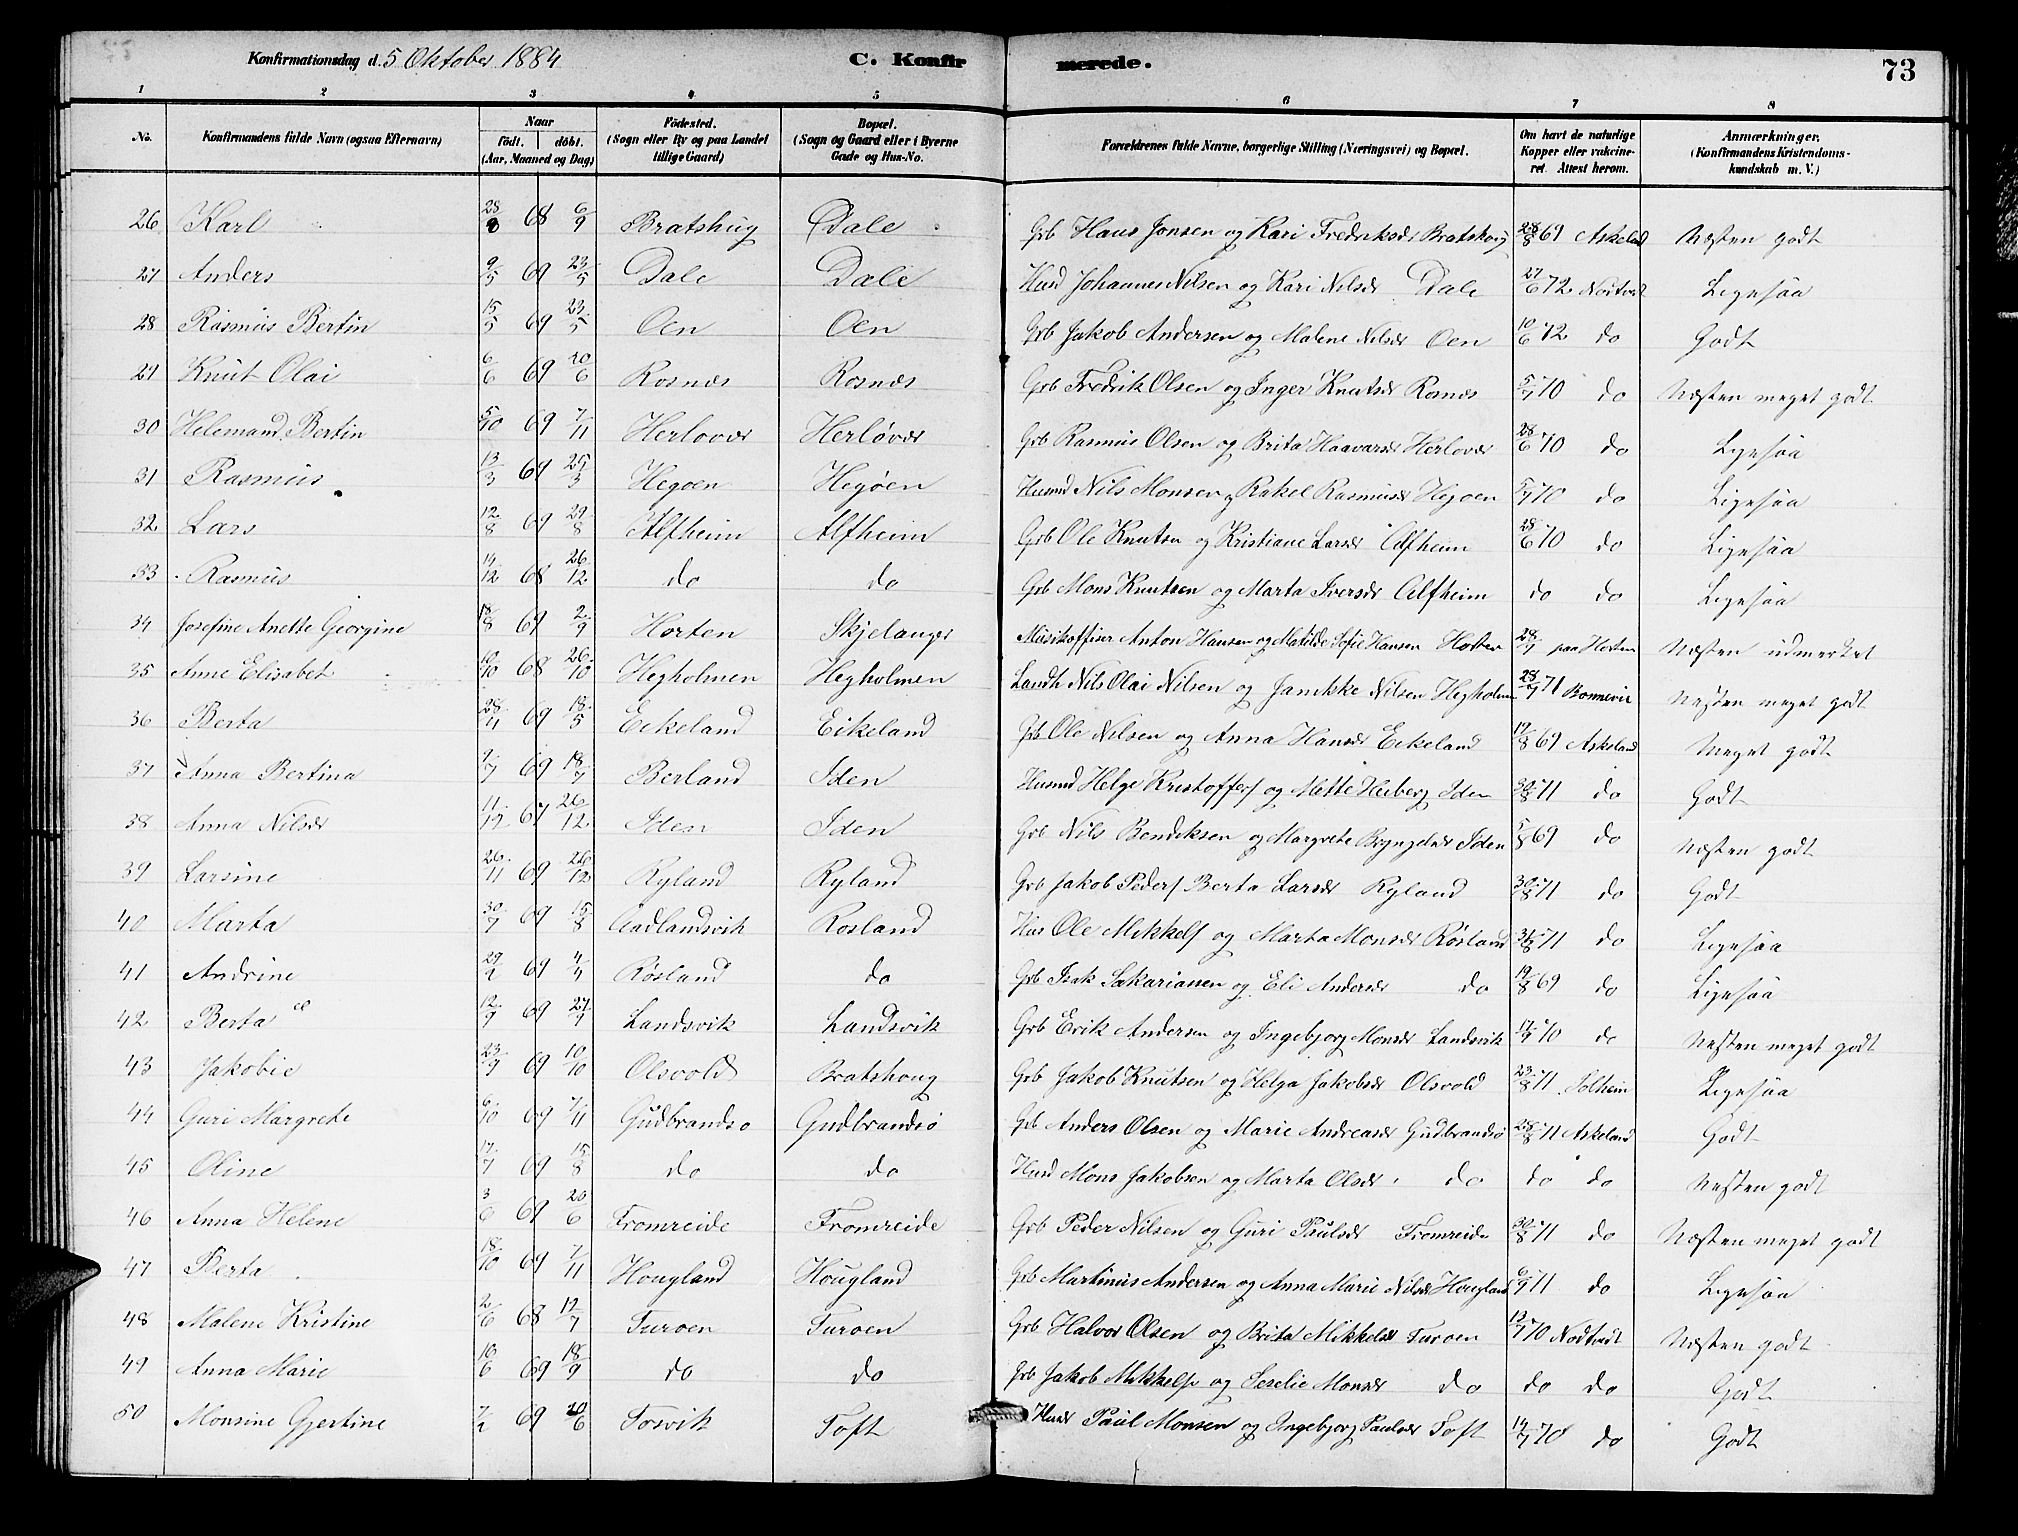 Konfirmationsdag d. 5 Oktober 1884 C. Konfirmerede. 73
1 2 3 4 5 6 7 8
No. Konfirmandens fulde Navn (ogsaa Efternavn) Naar födt. döbt. (Aar, Maaned og Dag) Födested. (Sogn eller By og paa Landet tillige Gaard) Bopæl. (Sogn og Gaard eller i Byerne Gade og Hus-No. Forældrenes fulde Navne, borgerlige Stilling (Næringsvei) og Bopæl. Om havt de naturlige Kopper eller vakcineret. Attest herom. Anmærkninger. (Konfirmandens Kristendomskundskab m. V.)
26 Karl 28/8 68 6/9 Bratshug Dale Grb Hans Jonsen og Kari Fredriksdr Bratshoug 28/8 69 Askeland Næsten godt
27 Anders 9/5 69 23/5 Dale Dale Husd Johannes Nilsen og Kari Nilsdr Dale 27/6 72 Nødtvedt Ligesaa
28 Rasmus Bertin 15/5 69 23/5 Oen Oen Grb Jakob Andersen og Malene Nilsdr Oen 10/6 72 do Godt
29 Knut Olai 6/6 69 20/6 Rosnæs Rosnæs Grb Fredrik Olsen og Inger Knutsdr Rosnæs 5/7 70 do Næsten meget godt
30 Helemand Bertin 5/10 69 7/11 Herlovær Herløvær Grb Rasmus Olsen og Brita Haavarsdr Herlovær 28/6 70 do Ligesaa
31 Rasmus 13/3 69 25/3 Hegoen Hegøen Husmd Nils Monsen og Rakel Rasmusdr Hegoen 5/7 70 do Ligesaa
32 Lars 12/8 69 29/8 Alfheim Alfheim Grb Ole Knutsen og Kristiane Larsdr Alfheim 28/6 70 do Ligesaa
33 Rasmus 14/12 68 26/12 do do Grb Mons Knutsen og Marta Iversdr Alfheim do do Ligesaa
34 Josefine Anette Georgine 18/8 69 2/9 Horten Skjelanger Musikoffiser Anton Hansen og Matilde Sofie Hansen Horten 28/7 paa Horten Næsten udmerket
35 Anne Elisabet 10/10 68 26/10 Hegholmen Hegholmen Landh Nils Olai Nilsen og Jamkke Nilsen Hegholmen 28/7 71 Bonnevie Næsten meget godt
36 Berta 28/4 69 18/5 Eikeland Eikeland Grb Ole Nilsen og Anna Hansdr Eikeland 19/8 69 Askeland Meget godt
37 Anna Bertina 7/7 69 18/7 Berland Iden Husmd Helge Kristoffers og Mette Heiberg Iden 30/8 71 do Godt
38 Anna Nilsdr 11/12 67 26/12 Iden Iden Grb Nils Bendiksen og Margrete Brynjelsdr Iden 5/8 69 do Næsten godt
39 Larsine 26/11 69 26/12 Ryland Ryland Grb Jakob Peders Berta Larsdr Ryland 30/8 71 do Godt
40 Marta 30/7 69 15/8 Aadlandsvik Rosland Hus Ole Mikkels og Marta Monsdr Røsland 31/8 71 do Ligesaa
41 Andrine 29/2 69 4/4 Røsland do Grb Isak Sakariassen og Eli Andersdr do 19/8 69 do Ligesaa
42 Berta 12/9 69 27/9 Landsvik Landsvik Grb Erik Andersen og Ingebjorg Monsdr Landsvik 17/9 70 do Næsten meget godt
43 Jakobie 23/9 69 10/10 Olsvold Bratshoug Grb Jakob Knutsen og Helga Jakobsdr Olsvold 23/8 71 Solheim Ligesaa
44 Guri Margrete 6/10 69 7/11 Gudbrandsø Gudbrandsø Grb Anders Olsen og Marie Andreasdr Gudbrandsø 28/8 71 Askeland Godt
45 Oline 17/7 69 15/8 do do Husd Mons Jakobsen og Marta Olsdr do do do Næsten godt
46 Anna Helene 3/6 69 20/6 Fromreide Fromreide Grb Peder Nilsen og Guri Paulsdr Fromreide 30/8 71 do Næsten meget godt
47 Berta 18/10 69 7/11 Hougland Hougland Grb Martinus Andersen og Anna Marie Nilsdr Hougland 6/9 71 do Ligesaa
48 Malene Kristine 2/6 68 12/7 Turoen Turoen Grb Halvor Olsen og Brita Mikkelsdr Turoen 13/7 70 Nodtvedt Næsten godt
49 Anna Marie 10/6 69 18/9 do do Grb Jakob Mikkelse og Serelie Monsdr do do do Godt
50 Monsine Gjertine 7/2 69 20/6 Tosvik Toft Husdr Paul Monsen og Ingebjorg Paulsdr Toft 14/7 70 do Godt